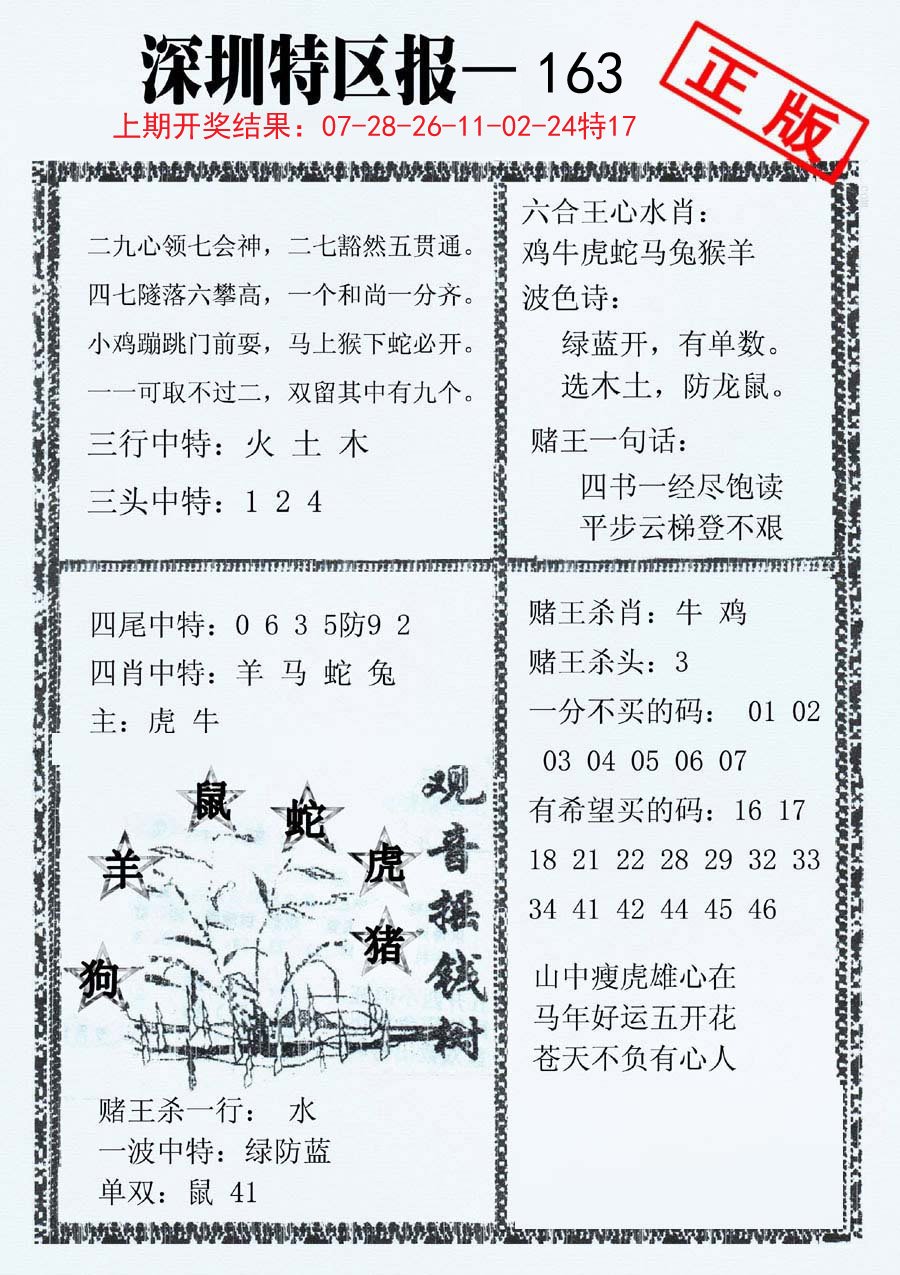 深圳特区报—163
正版
上期开奖结果：07-28-26-11-02-24特17
二九心领七会神，二七豁然五贯通。
四七隧落六攀高，一个和尚一分齐。
小鸡蹦跳门前耍，马上猴下蛇必开。
一一可取不过二，双留其中有九个。
三行中特：火 土 木
三头中特：1 2 4
六合王心水肖：
鸡牛虎蛇马兔猴羊
波色诗：
绿蓝开，有单数。
选木土，防龙鼠。
赌王一句话：
四书一经尽饱读
平步云梯登不艰
四尾中特：0 6 3 5防9 2
四肖中特：羊 马 蛇 兔
主：虎 牛
鼠
蛇
羊
虎
猪
狗
观音摇钱树
赌王杀一行： 水
一波中特：绿防蓝
单双：鼠 41
赌王杀肖：牛 鸡
赌王杀头：3
一分不买的码： 01 02
03 04 05 06 07
有希望买的码：16 17
18 21 22 28 29 32 33
34 41 42 44 45 46
山中瘦虎雄心在
马年好运五开花
苍天不负有心人